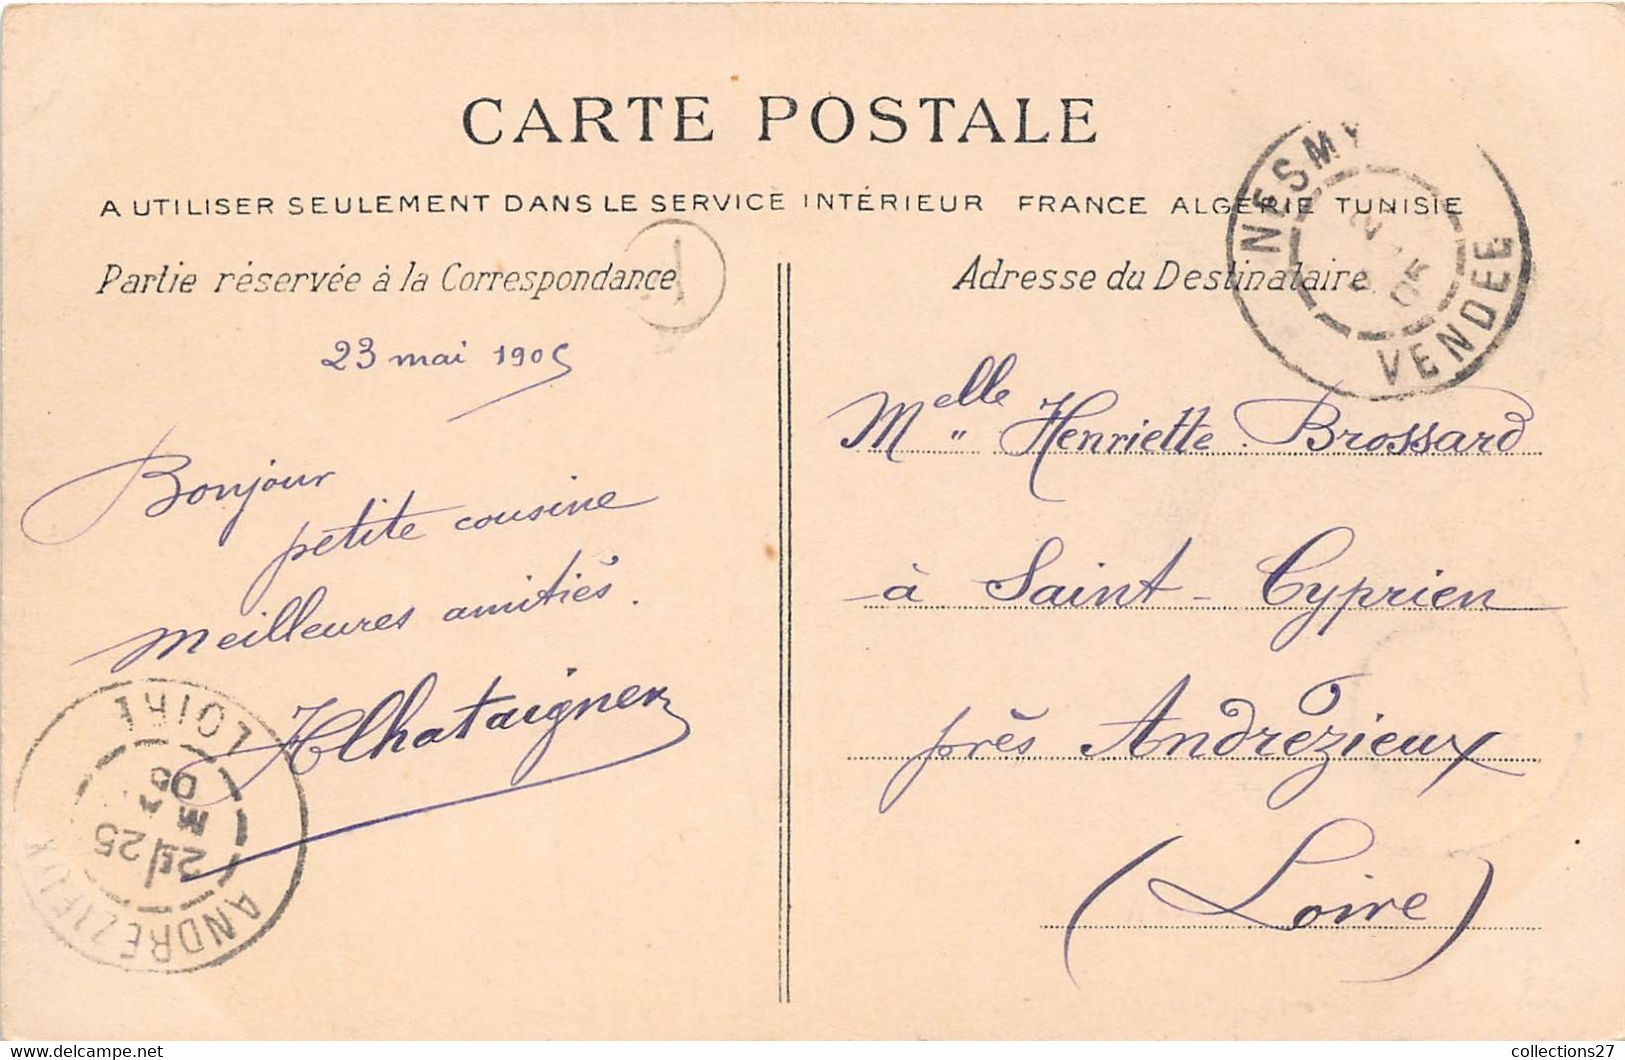 CARTE POSTALE
A UTILISER SEULEMENT DANS LE SERVICE INTÉRIEUR FRANCE ALGERIE TUNISIE
Partie réservée à la Correspondance
Adresse du Destinataire
NESMY
VENDEE
05
23 mai 1905
Bonjour
petite cousine
meilleures amitiés.
HChataigner
Melle Henriette Brossard
à Saint-Cyprien
près Andrézieux
(Loire)
LOIRE
25
ANDREZIEUX
collections27